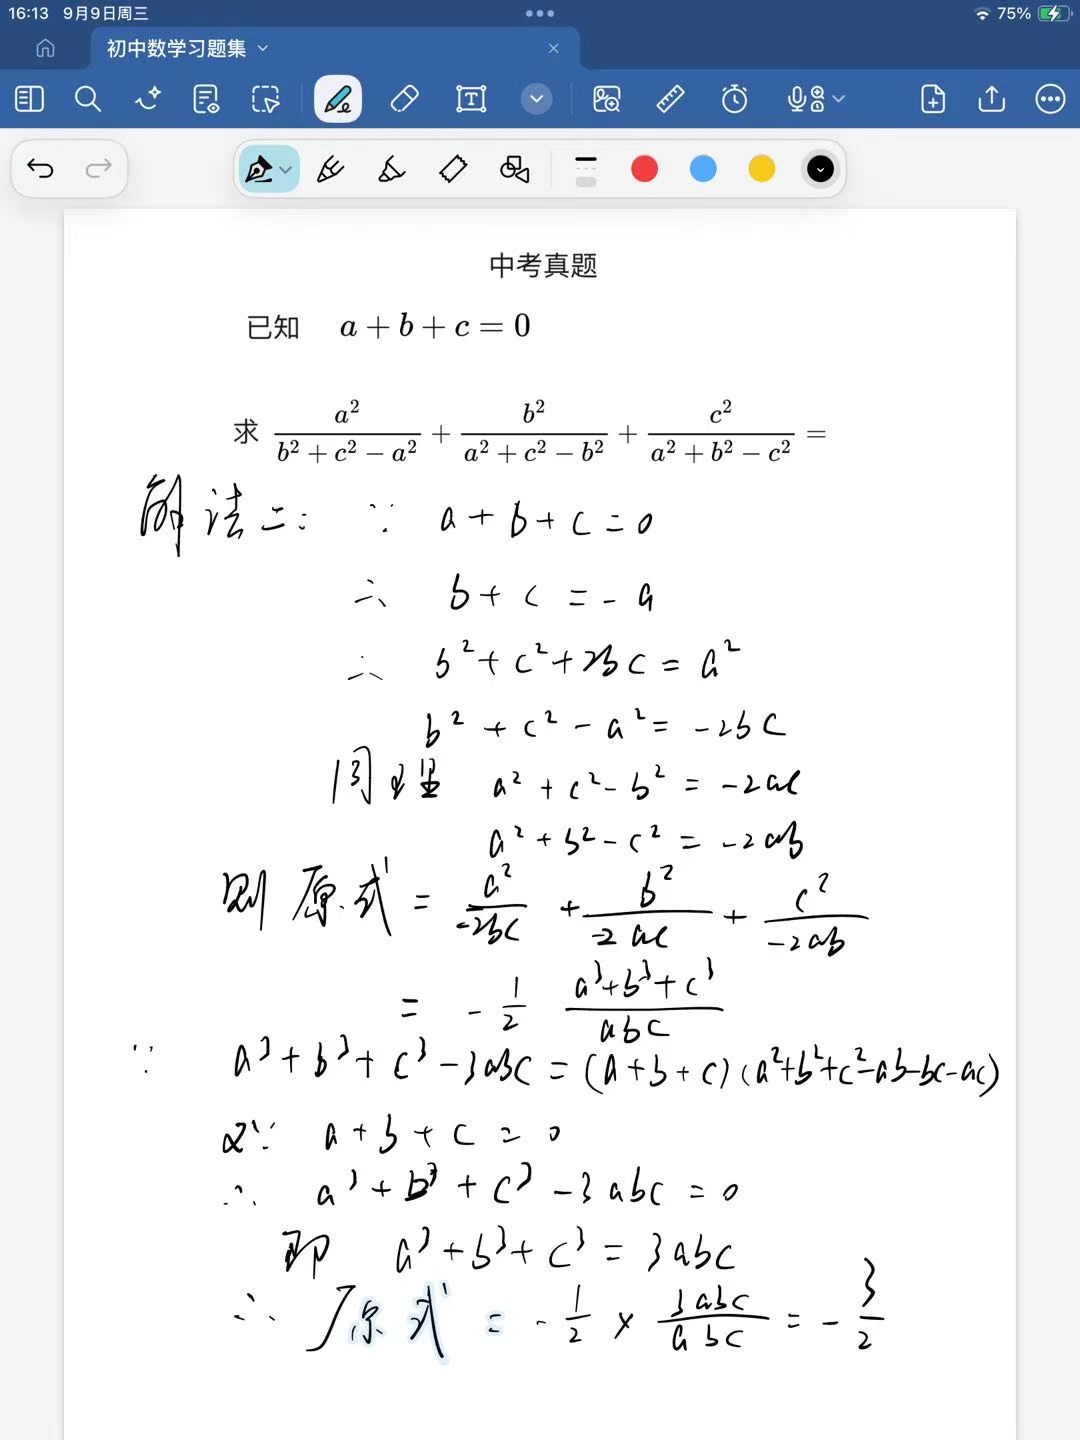 16:13 9月9日周三 75%
初中数学习题集
中考真题
已知 a + b + c = 0
求 a²/(b² + c² − a²) + b²/(a² + c² − b²) + c²/(a² + b² − c²) =
解法二: ∵ a + b + c = 0
∴ b + c = - a
∴ b² + c² + 2bc = a²
b² + c² - a² = -2bc
同理 a² + c² - b² = -2ac
a² + b² - c² = -2ab
则 原式 = a²/-2bc + b²/-2ac + c²/-2ab
= - 1/2 (a³+b³+c³)/abc
∵ a³ + b³ + c³ - 3abc = (a+b+c)(a²+b²+c²-ab-bc-ac)
又∵ a + b + c = 0
∴ a³ + b³ + c³ - 3abc = 0
即 a³ + b³ + c³ = 3abc
∴ 原式 = - 1/2 × 3abc/abc = - 3/2